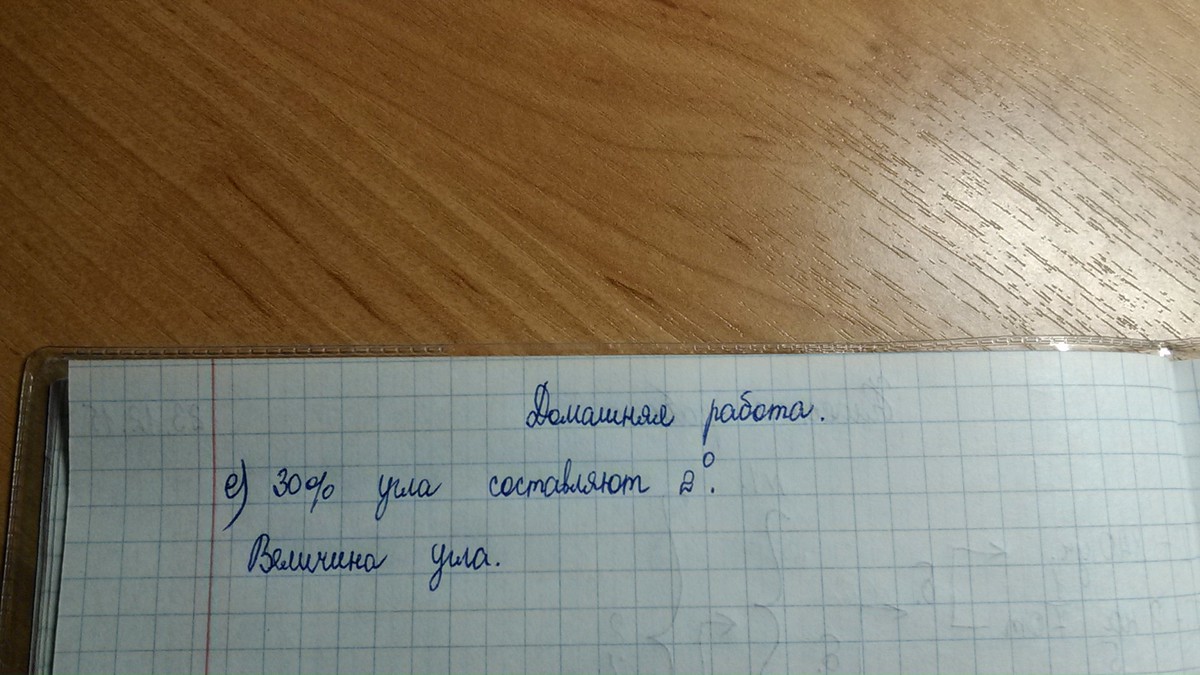 Домашняя работа.
е) 30% угла составляют 2°.
Величина угла.